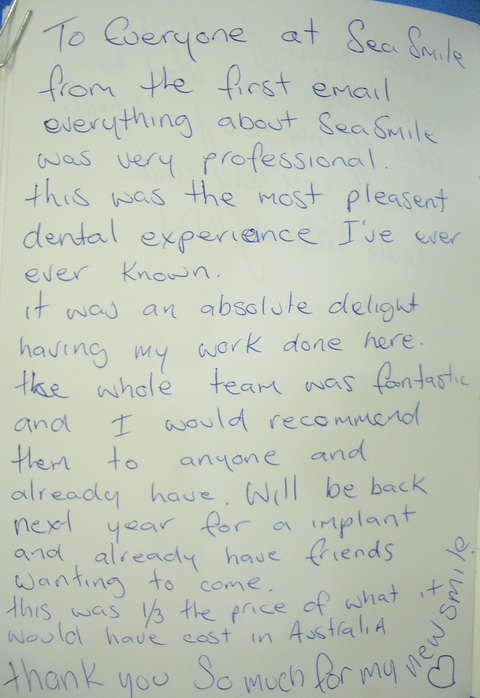 To Everyone at Sea Smile
from the first email
everything about SeaSmile
was very professional.
this was the most pleasent
dental experience I've ever
ever known.
it was an absolute delight
having my work done here.
the whole team was fantastic
and I would recommend
them to anyone and
already have. Will be back
next year for a implant
and already have friends
wanting to come.
this was 1/3 the price of what it
would have cost in Australia
thank you so much for my new smile ♡